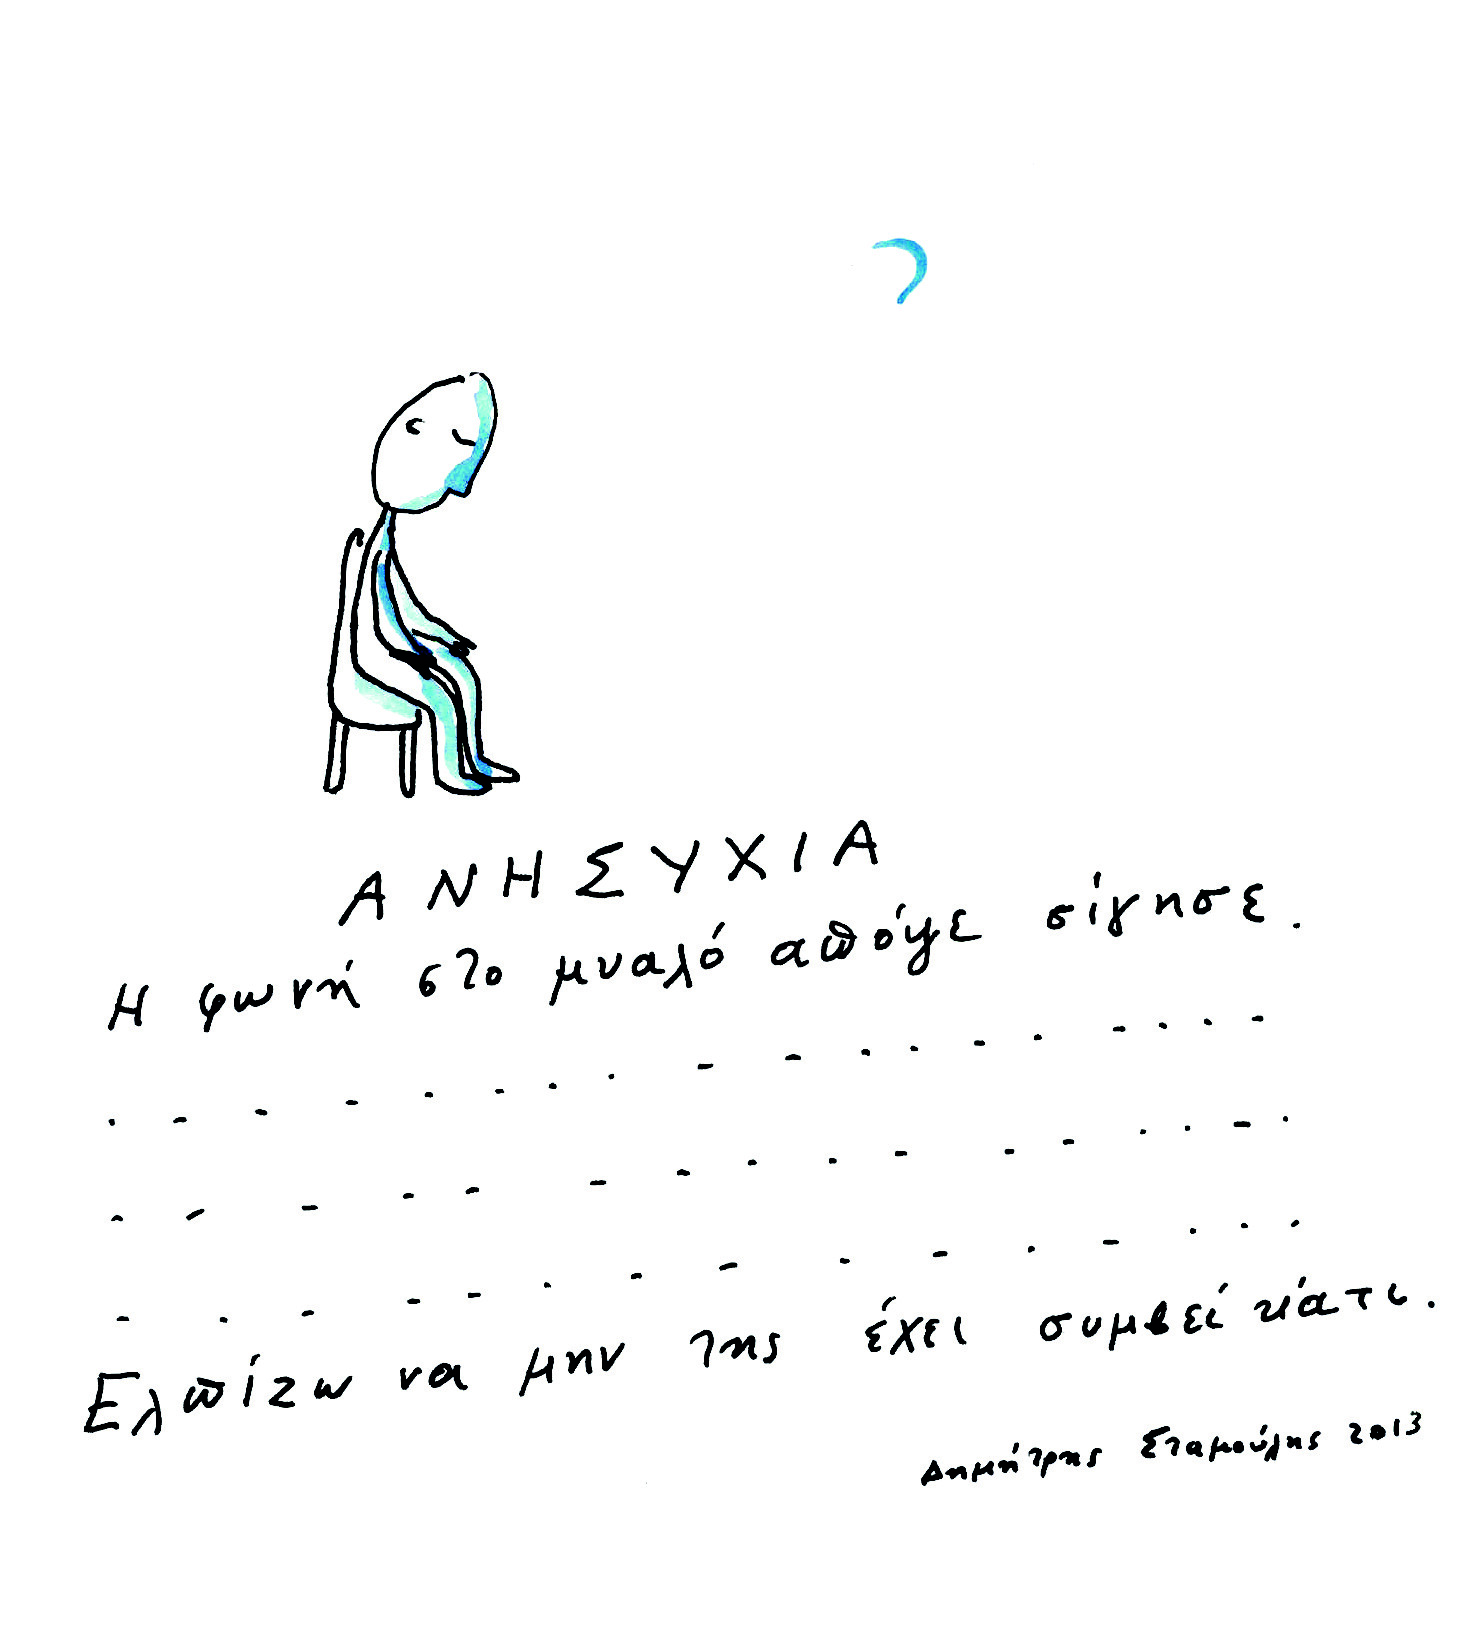 ΑΝΗΣΥΧΙΑ
Η φωνή στο μυαλό απόψε σίγησε.
. - - - - - - . - - . . - . - . . -
. - - - - - - - . - - - . . - .
- . - - - . - - . - . - . . .
Ελπίζω να μην της έχει συμβεί κάτι.
Δημήτρης Σταμούλης 2013